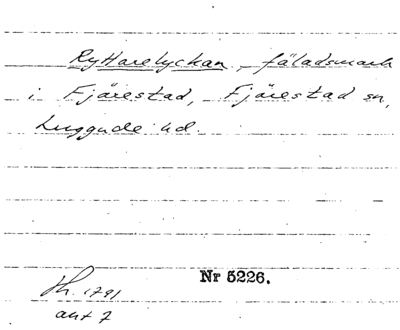 Ryttarelyckan, fäladsmark
i Fjärestad, Fjärestad sn,
Luggude hd.
Nr 5226.
Sk. 1791
akt 7